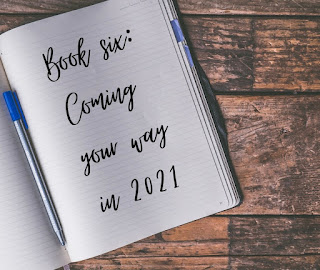 Book six:
Coming
your way
in 2021